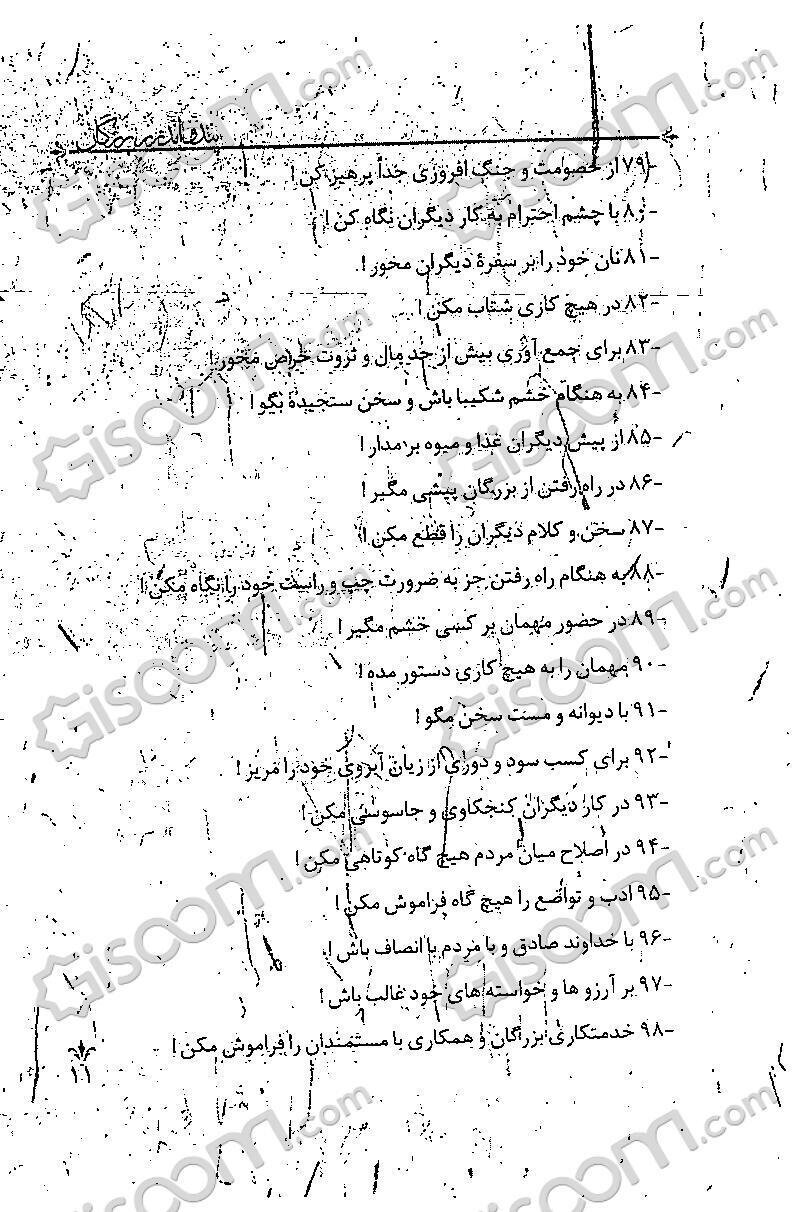 پند و اندرز بزرگان
۷۹- از خصومت و جنگ افروزی جداً پرهیز کن!
۸۰- با چشم احترام به کار دیگران نگاه کن!
۸۱- نان خود را بر سفرهٔ دیگران مخور!
۸۲- در هیچ کاری شتاب مکن!
۸۳- برای جمع آوری بیش از حد مال و ثروت حرص مخور!
۸۴- به هنگام خشم شکیبا باش و سخن سنجیده بگو!
۸۵- از پیش دیگران غذا و میوه بر مدار!
۸۶- در راه رفتن از بزرگان پیشی مگیر!
۸۷- سخن و کلام دیگران را قطع مکن!
۸۸- به هنگام راه رفتن جز به ضرورت چپ و راست خود را نگاه مکن!
۸۹- در حضور مهمان بر کسی خشم مگیر!
۹۰- مهمان را به هیچ کاری دستور مده!
۹۱- با دیوانه و مست سخن مگو!
۹۲- برای کسب سود و دوری از زیان آبروی خود را مریز!
۹۳- در کار دیگران کنجکاوی و جاسوسی مکن!
۹۴- در اصلاح میان مردم هیچ گاه کوتاهی مکن!
۹۵- ادب و تواضع را هیچ گاه فراموش مکن!
۹۶- با خداوند صادق و با مردم با انصاف باش!
۹۷- بر آرزو ها و خواسته های خود غالب باش!
۹۸- خدمتکاری بزرگان و همکاری با مستمندان را فراموش مکن!
۱۱
Giscoom.com